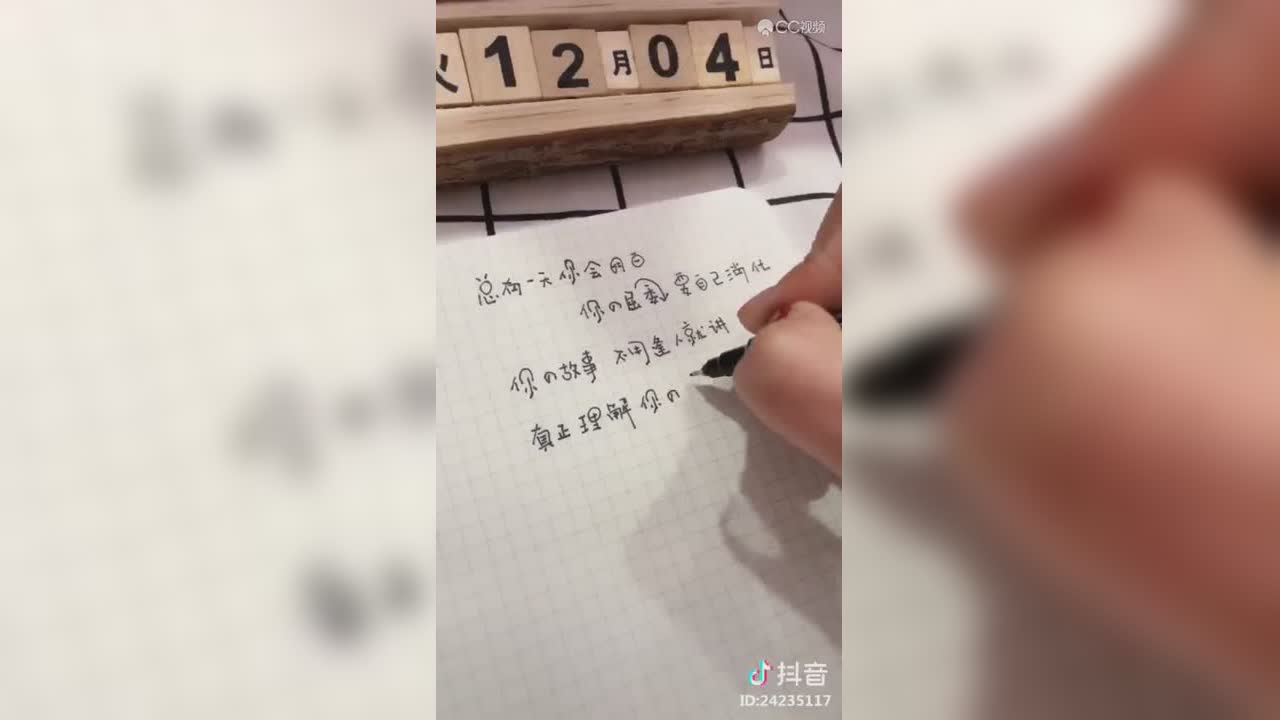 CC视频
火12月04日
总有一天你会明白
你の屈委要自己消化
你の故事不用逢人就讲
真正理解你の
抖音
ID:24235117